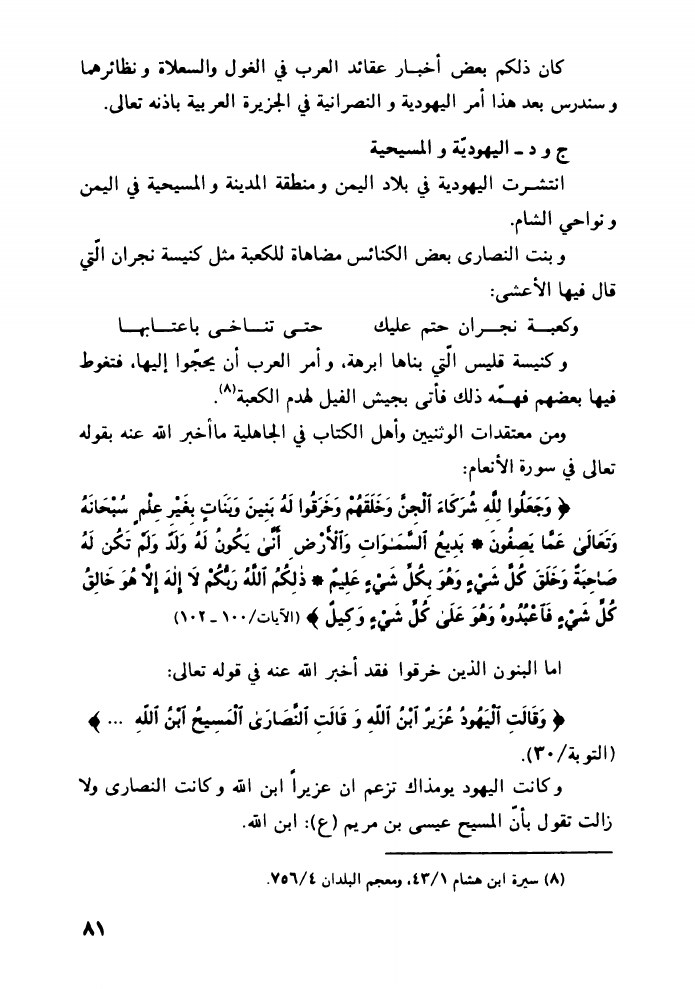 كان ذلكم بعض أخبار عقائد العرب في الغول والسعلاة و نظائرهما
و سندرس بعد هذا أمر اليهودية و النصرانية في الجزيرة العربية باذنه تعالى.
ج و د ـ اليهوديّة و المسيحية
انتشرت اليهودية في بلاد اليمن و منطقة المدينة و المسيحية في اليمن
و نواحي الشام.
و بنت النصارى بعض الكنائس مضاهاة للكعبة مثل كنيسة نجران الّتي
قال فيها الأعشى:
وكعبة نجران حتم عليك حتى تناخى باعتابها
و كنيسة قليس الّتي بناها ابرهة، و أمر العرب أن يحجّوا إليها، فتغوط
فيها بعضهم فهمّه ذلك فأتى بجيش الفيل لهدم الكعبة(٨).
ومن معتقدات الوثنيين وأهل الكتاب في الجاهلية ماأخبر الله عنه بقوله
تعالى في سورة الأنعام:
﴿ وَجَعَلُوا لِلّهِ شُرَكَاءَ ٱلْجِنَّ وَخَلَقَهُمْ وَخَرَقُوا لَهُ بَنِينَ وَبَنَاتٍ بِغَيْرِ عِلْمٍ سُبْحَانَهُ
وَتَعَالَىٰ عَمَّا يَصِفُونَ * بَدِيعُ ٱلسَّمٰوَاتِ وَٱلْأَرْضِ أَنَّىٰ يَكُونُ لَهُ وَلَدٌ وَلَمْ تَكُن لَهُ
صَاحِبَةٌ وَخَلَقَ كُلَّ شَيْءٍ وَهُوَ بِكُلِّ شَيْءٍ عَلِيمٌ * ذٰلِكُمُ ٱللَّهُ رَبُّكُمْ لَا إِلٰهَ إِلَّا هُوَ خَالِقُ
كُلِّ شَيْءٍ فَٱعْبُدُوهُ وَهُوَ عَلَىٰ كُلِّ شَيْءٍ وَكِيلٌ ﴾ (الآيات/١٠٠ ـ ١٠٢)
اما البنون الذين خرقوا فقد أخبر الله عنه في قوله تعالى:
﴿ وَقَالَتِ ٱلْيَهُودُ عُزَيْرٌ ٱبْنُ ٱللّهِ وَ قَالَتِ ٱلنَّصَارَىٰ ٱلْمَسِيحُ ٱبْنُ ٱللّهِ ... ﴾
(التوبة/٣٠).
و كانت اليهود يومذاك تزعم ان عزيراً ابن الله و كانت النصارى ولا
زالت تقول بأنّ المسيح عيسى بن مريم (ع): ابن الله.
(٨) سيرة ابن هشام ٤٣/١، ومعجم البلدان ٧٥٦/٤.
٨١